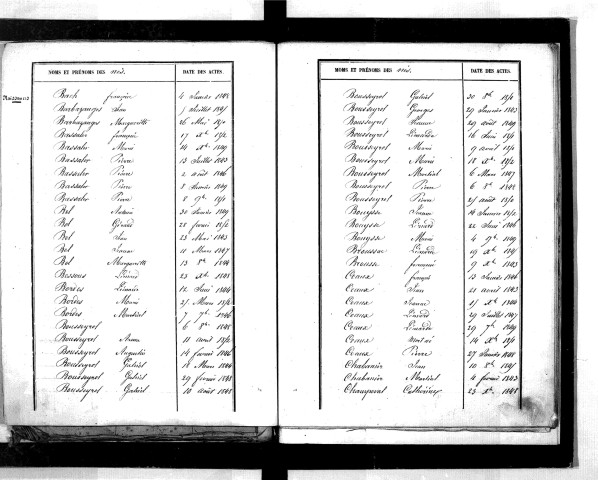 Naissances
NOMS ET PRÉNOMS DES nés. DATE DES ACTES.
Bach françois 4 Janvier
Barbazanges Jean Juillet
Barbazanges Marguerite 26 Mai
Bassaler françois 17 Xbre
Bassaler Marie 14 Xbre 1849
Bassaler Pierre 13 Juillet 1843
Bassaler Pierre 2 août 1846
Bassaler Pierre 2 1849
Bassaler Pierre 8 9bre
Bel Antoine 30 Janvier 1849
Bel Géraud 28 février
Bel Jean 23 Mai 1843
Bel 10 Mars 1847
Bel Marguerite 13 8bre 1844
Bessous Léonard 23 Xbre 1848
Bordes Léonard 12 Juin 1844
Bordes Marie 25 Mars
Bordes Martial 7 7bre 1846
Bousseyrol 6 8bre 1845
Bousseyrol Anne 11 avril
Bousseyrol Augustin 14 février 1846
Bousseyrol Gabriel 18 Mars 1844
Bousseyrol Gabriel 29 février 1848
Bousseyrol Gabriel 10 août 1848
NOMS ET PRÉNOMS DES nés. DATE DES ACTES.
Bousseyrol Gabriel 30 8bre
Bousseyrol Georges 29 Janvier 1843
Bousseyrol Jeanne 29 août 1849
Bousseyrol Léonarde 16 Juin
Bousseyrol Marie 9 avril
Bousseyrol Marie 18 Xbre
Bousseyrol Martial 6 Mars 1847
Bousseyrol Pierre 6 8bre
Bousseyrol Pierre 25 août
Bouysse Jeanne 16 Janvier
Bouysse Léonard 22 Juin 1846
Bouysse Marie 4 9bre 1849
Brousse Léonarde 19 Xbre
Brousse 9 Xbre 1843
Ceaux françois 13 Janvier 1846
Ceaux Jean 21 avril 1843
Ceaux Jeanne 15 Xbre 1844
Ceaux Léonard 29 Juillet 1847
Ceaux Léonarde 29 7bre 1849
Ceaux 14 Xbre
Ceaux Pierre 27 Janvier 1848
Chabanier Jean 10 8bre
Chabanier Martial 4 février 1843
Champeval Catherine 23 Xbre 1848